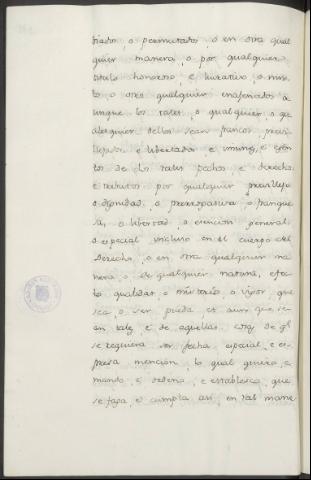 trados, o permutados, o en otra qual
quier manera, o por qualquier
titulo honoroso, e lucrativo, o mix
to, o otro qualquier enagenados a
unque los tales, o qualquier, o qu
alesquier dellos sean francos, previ
llejados e libertados e inmunes, e esen
tos de los tales pechos e derechos
e tributos por qualquier previllejo
o dignidad, o prerrogativa, o franque
sa, o libertad, o esencion general,
o especial incluso en el cuerpo del
derecho, o en otra qualquier ma
nera, o de qualquier natura, efec
to, qualidad, o misterio, o vigor, que
sea, o ser pueda, et aunque se
an tales, e de aquellas cosas, de que
se requiera ser fecha especial, e es
presa mencion, lo qual quiero, e
mando e ordeno, e establesco, que
se faga, e cumpla asi, en tal mane